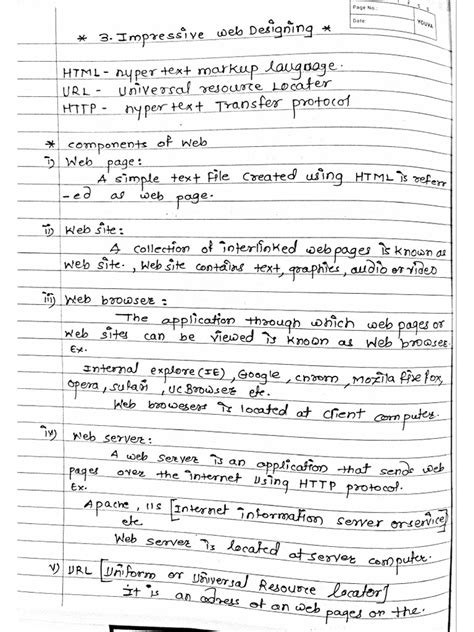 Page No.:
Date:
YOUVA
* 3. Impressive web Designing *
HTML - nyper text markup language.
URL - universal resource Locater
HTTP - nyper text Transfer protocol
* components of web
i) Web page:
A simple text file created using HTML is referr
-ed as web page.
ii) Web site:
A collection of interlinked webpages is known as
web site., Web site contains text, graphics, audio or video
iii) Web browser:
The application through which web pages or
web sites can be viewed is known as web browser.
Ex.
Internal explore(IE), Google, cnrom, Mozila firefox,
opera, sufari, UC Browser etc.
Web browsers is located at client computer.
iv) Web server:
A web server is an application that sends web
pages over the internet using HTTP protocol.
Ex.
Apache, IIS [Internet information server orservice]
etc
Web server is located at server computer.
v) URL [Uniform or Universal Resource locater]
It is an adress of an web pages on the.